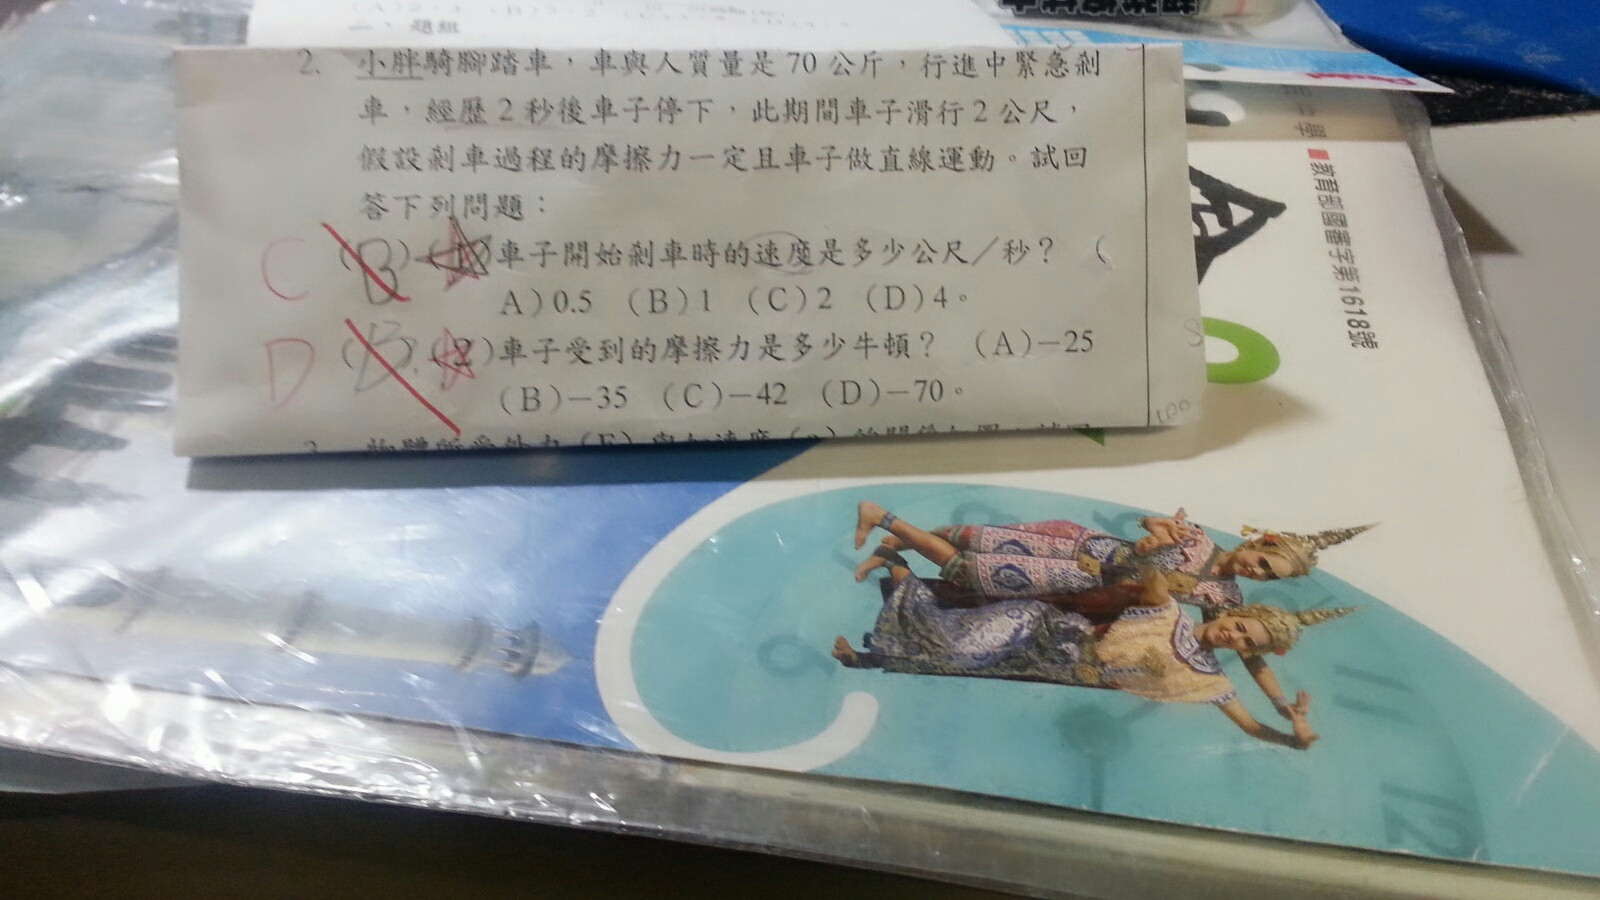 二、題組
2. 小胖騎腳踏車，車與人質量是70公斤，行進中緊急剎
車，經歷2秒後車子停下，此期間車子滑行2公尺，
假設剎車過程的摩擦力一定且車子做直線運動。試回
答下列問題：
C (B) (1)車子開始剎車時的速度是多少公尺／秒？ (
A)0.5 (B)1 (C)2 (D)4。
D (B) (2)車子受到的摩擦力是多少牛頓？ (A)−25
(B)−35 (C)−42 (D)−70。
教育部國審字第1618號
9
11
12